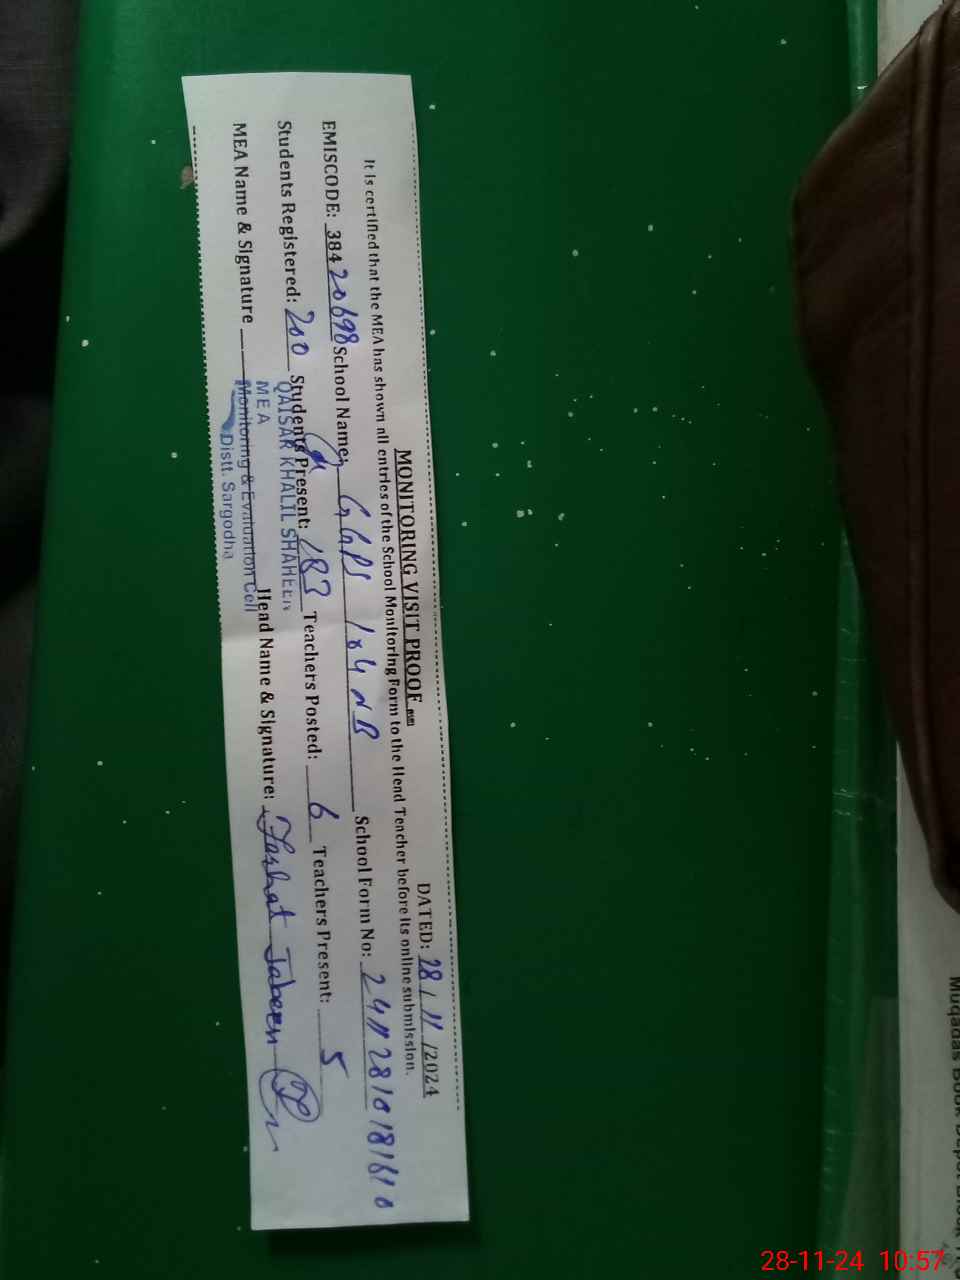 MONITORING VISIT PROOF
DATED: 28/11/2024
It is certified that the MEA has shown all entries of the School Monitoring Form to the Head Teacher before its online submission.
EMISCODE: 38420698 School Name: GGPS 104 NB School Form No:
Students Registered: 200 Students Present: 183 Teachers Posted: 6 Teachers Present: 5
QAISAR KHALIL SHAHEEN
MEA
MEA Name & Signature Head Name & Signature: Jabeen
Monitoring & Evaluation Cell
Distt. Sargodha
Muqadas Book Depot Block
28-11-24 10:57